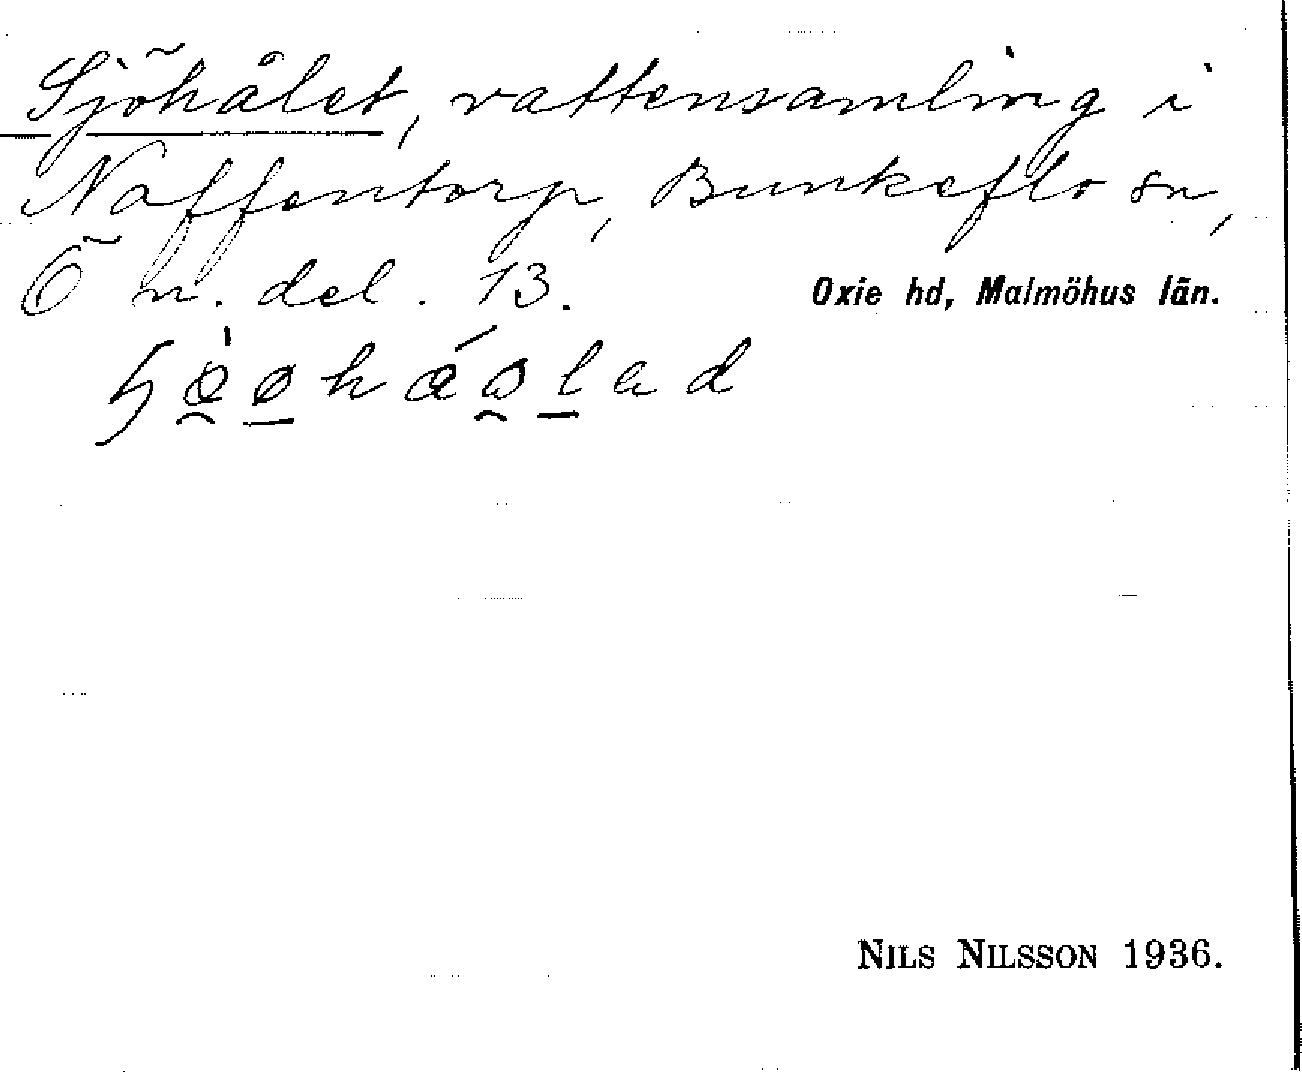 Sjöhålet, vattensamling i
Naffentorp, Bunkeflo sn,
Ö n. del. 13. Oxie hd, Malmöhus län.
NILS NILSSON 1936.